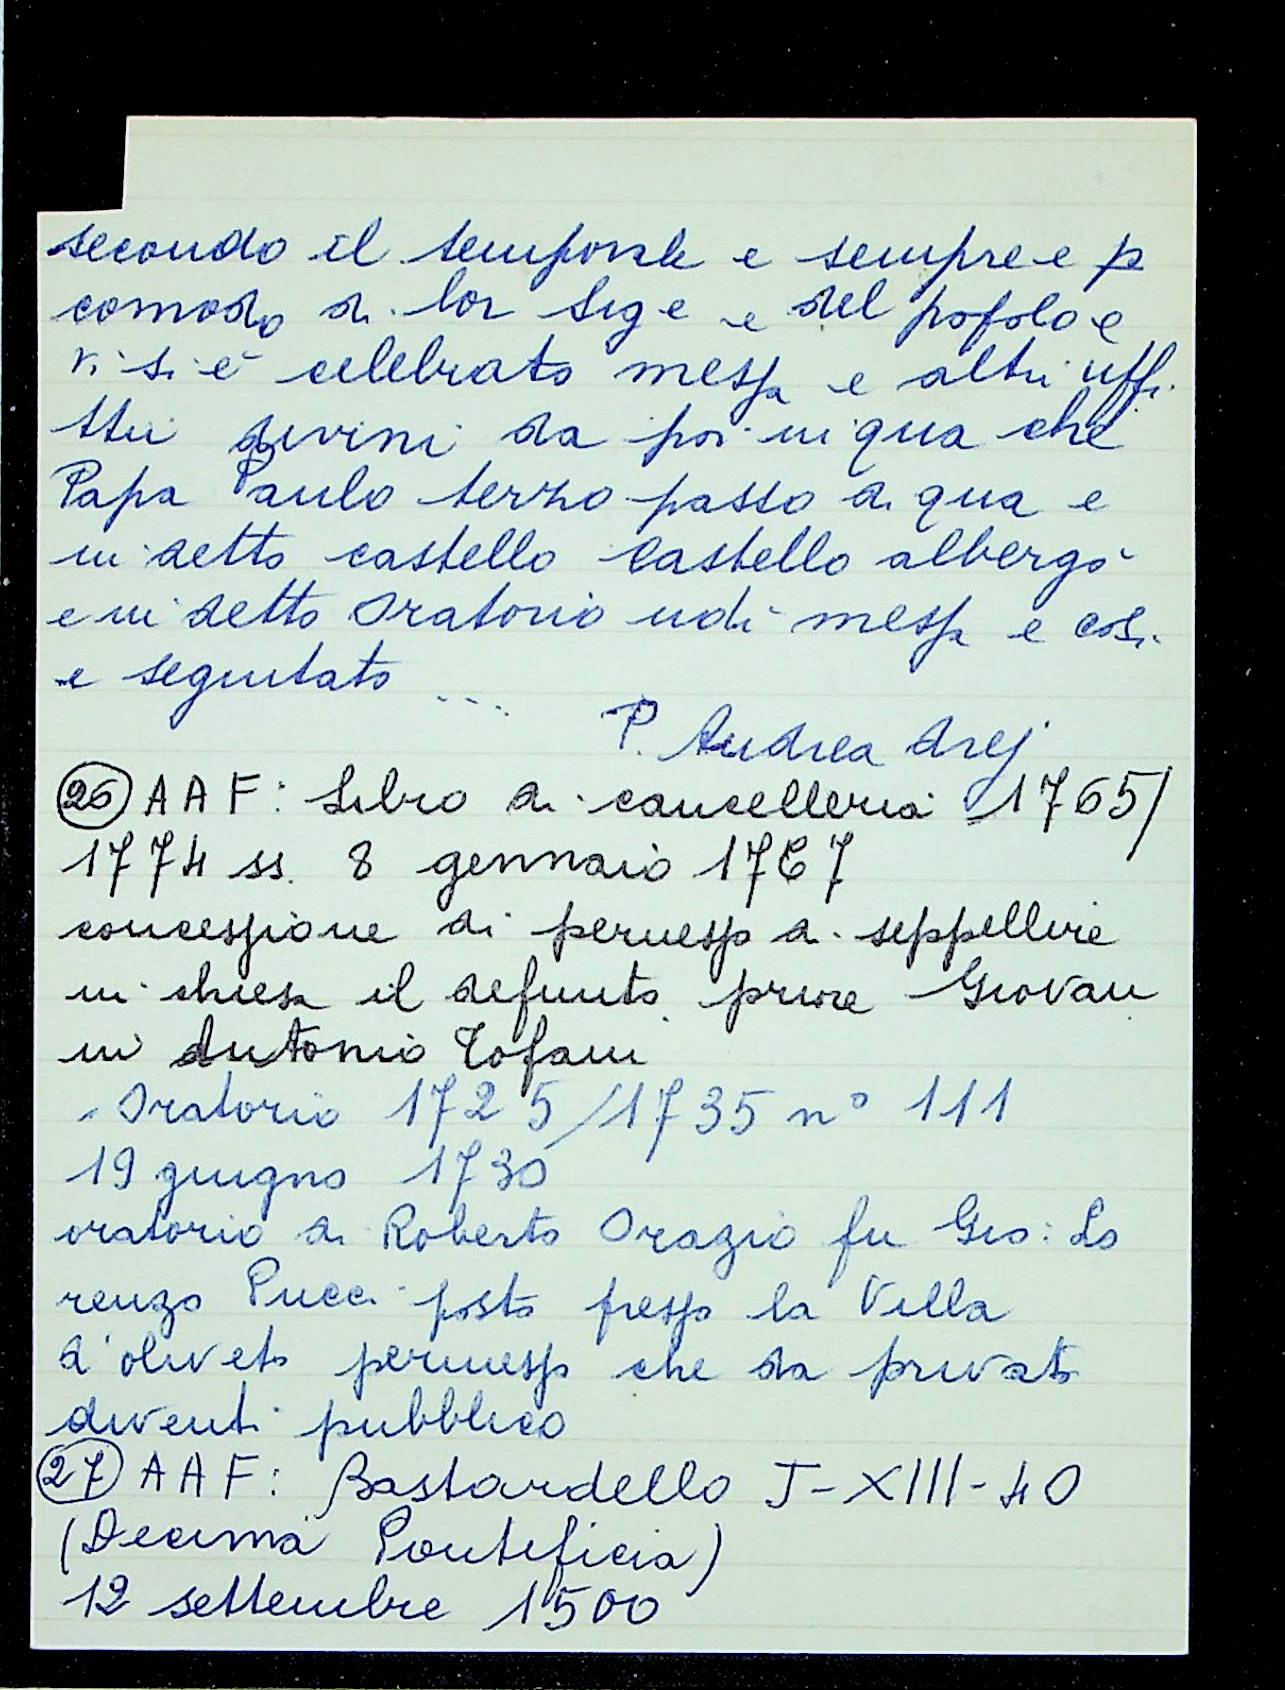 secondo il temporale e sempre e p
comodo di lor Sige e del popolo e
vi si è celebrato messa e altri uffi
tii divini da poi in qua che
Papa Paulo terzo passo di qua e
in detto castello Castello albergò
e in detto Oratorio udì messa e cosi
e seguitato ....
P. Andrea
26 AAF: Libro di cancelleria 1765/
1774 ss. 8 gennaio 1767
concessione di permesso di seppellire
in chiesa il defunto priore Giovan
ni Antonio Tofani
- Oratorio 1725/1735 n° 111
19 giugno 1730
oratorio di Roberto Orazio fu Gio: Lo
renzo Pucci posto presso la Villa
d'oliveto permesso che da privato
diventi pubblico
27 AAF: Bastardello J-XIII-40
(Decima Pontificia)
12 settembre 1500